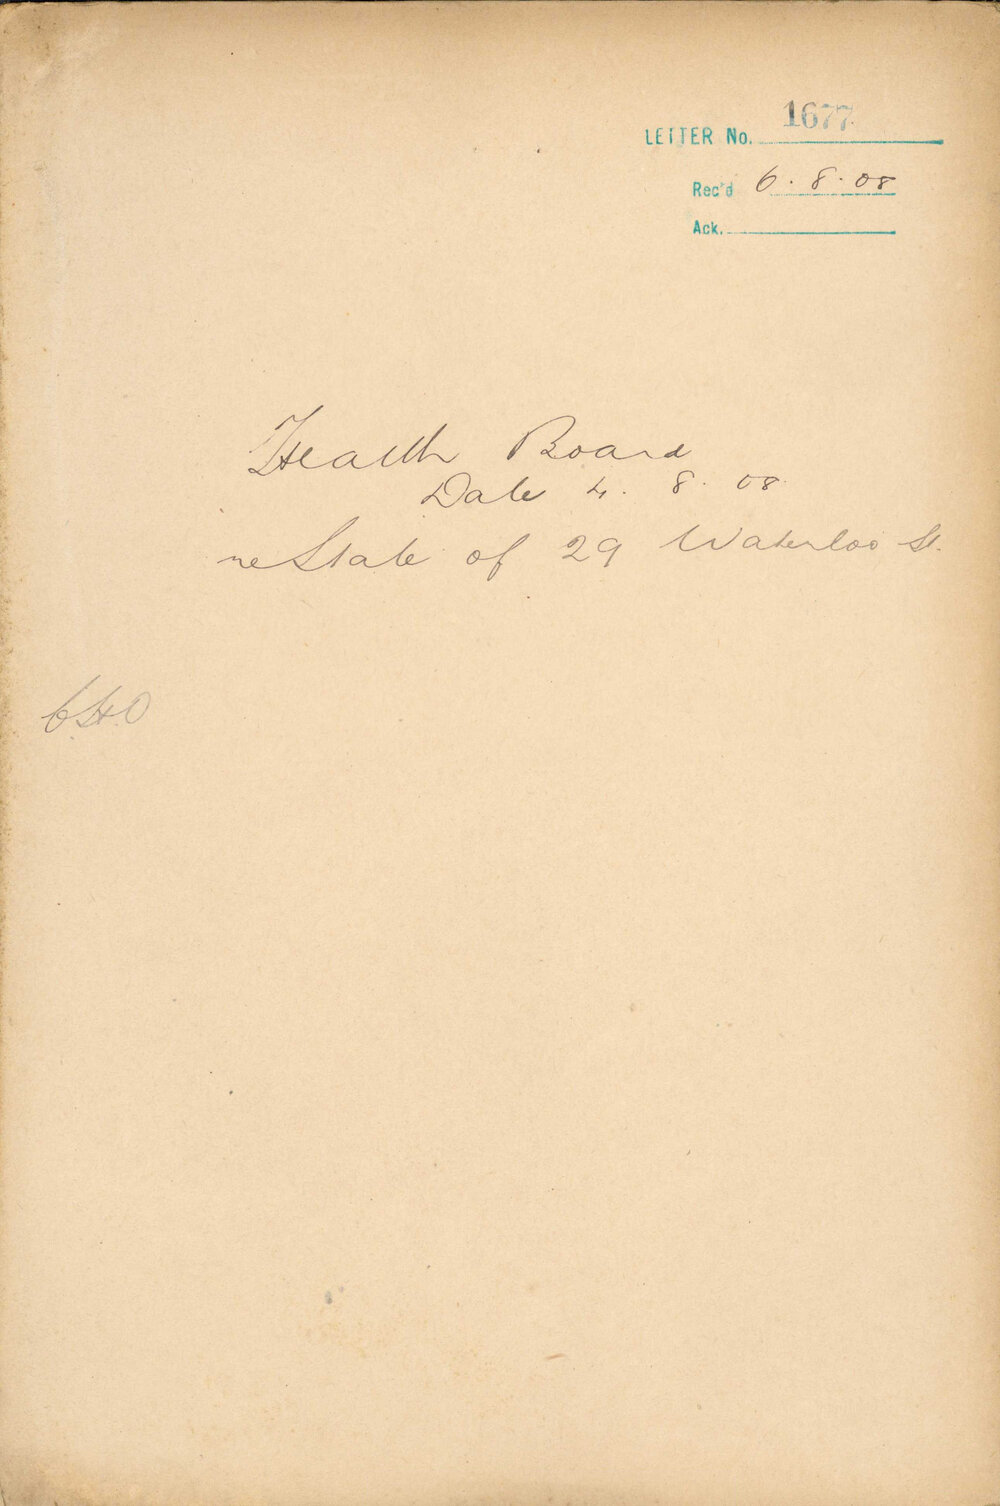 LETTER No. 1677
Rec'd 6.8.08
Ack.
Health Board
Date 4. 8. 08.
re State of 29 Waterloo St.